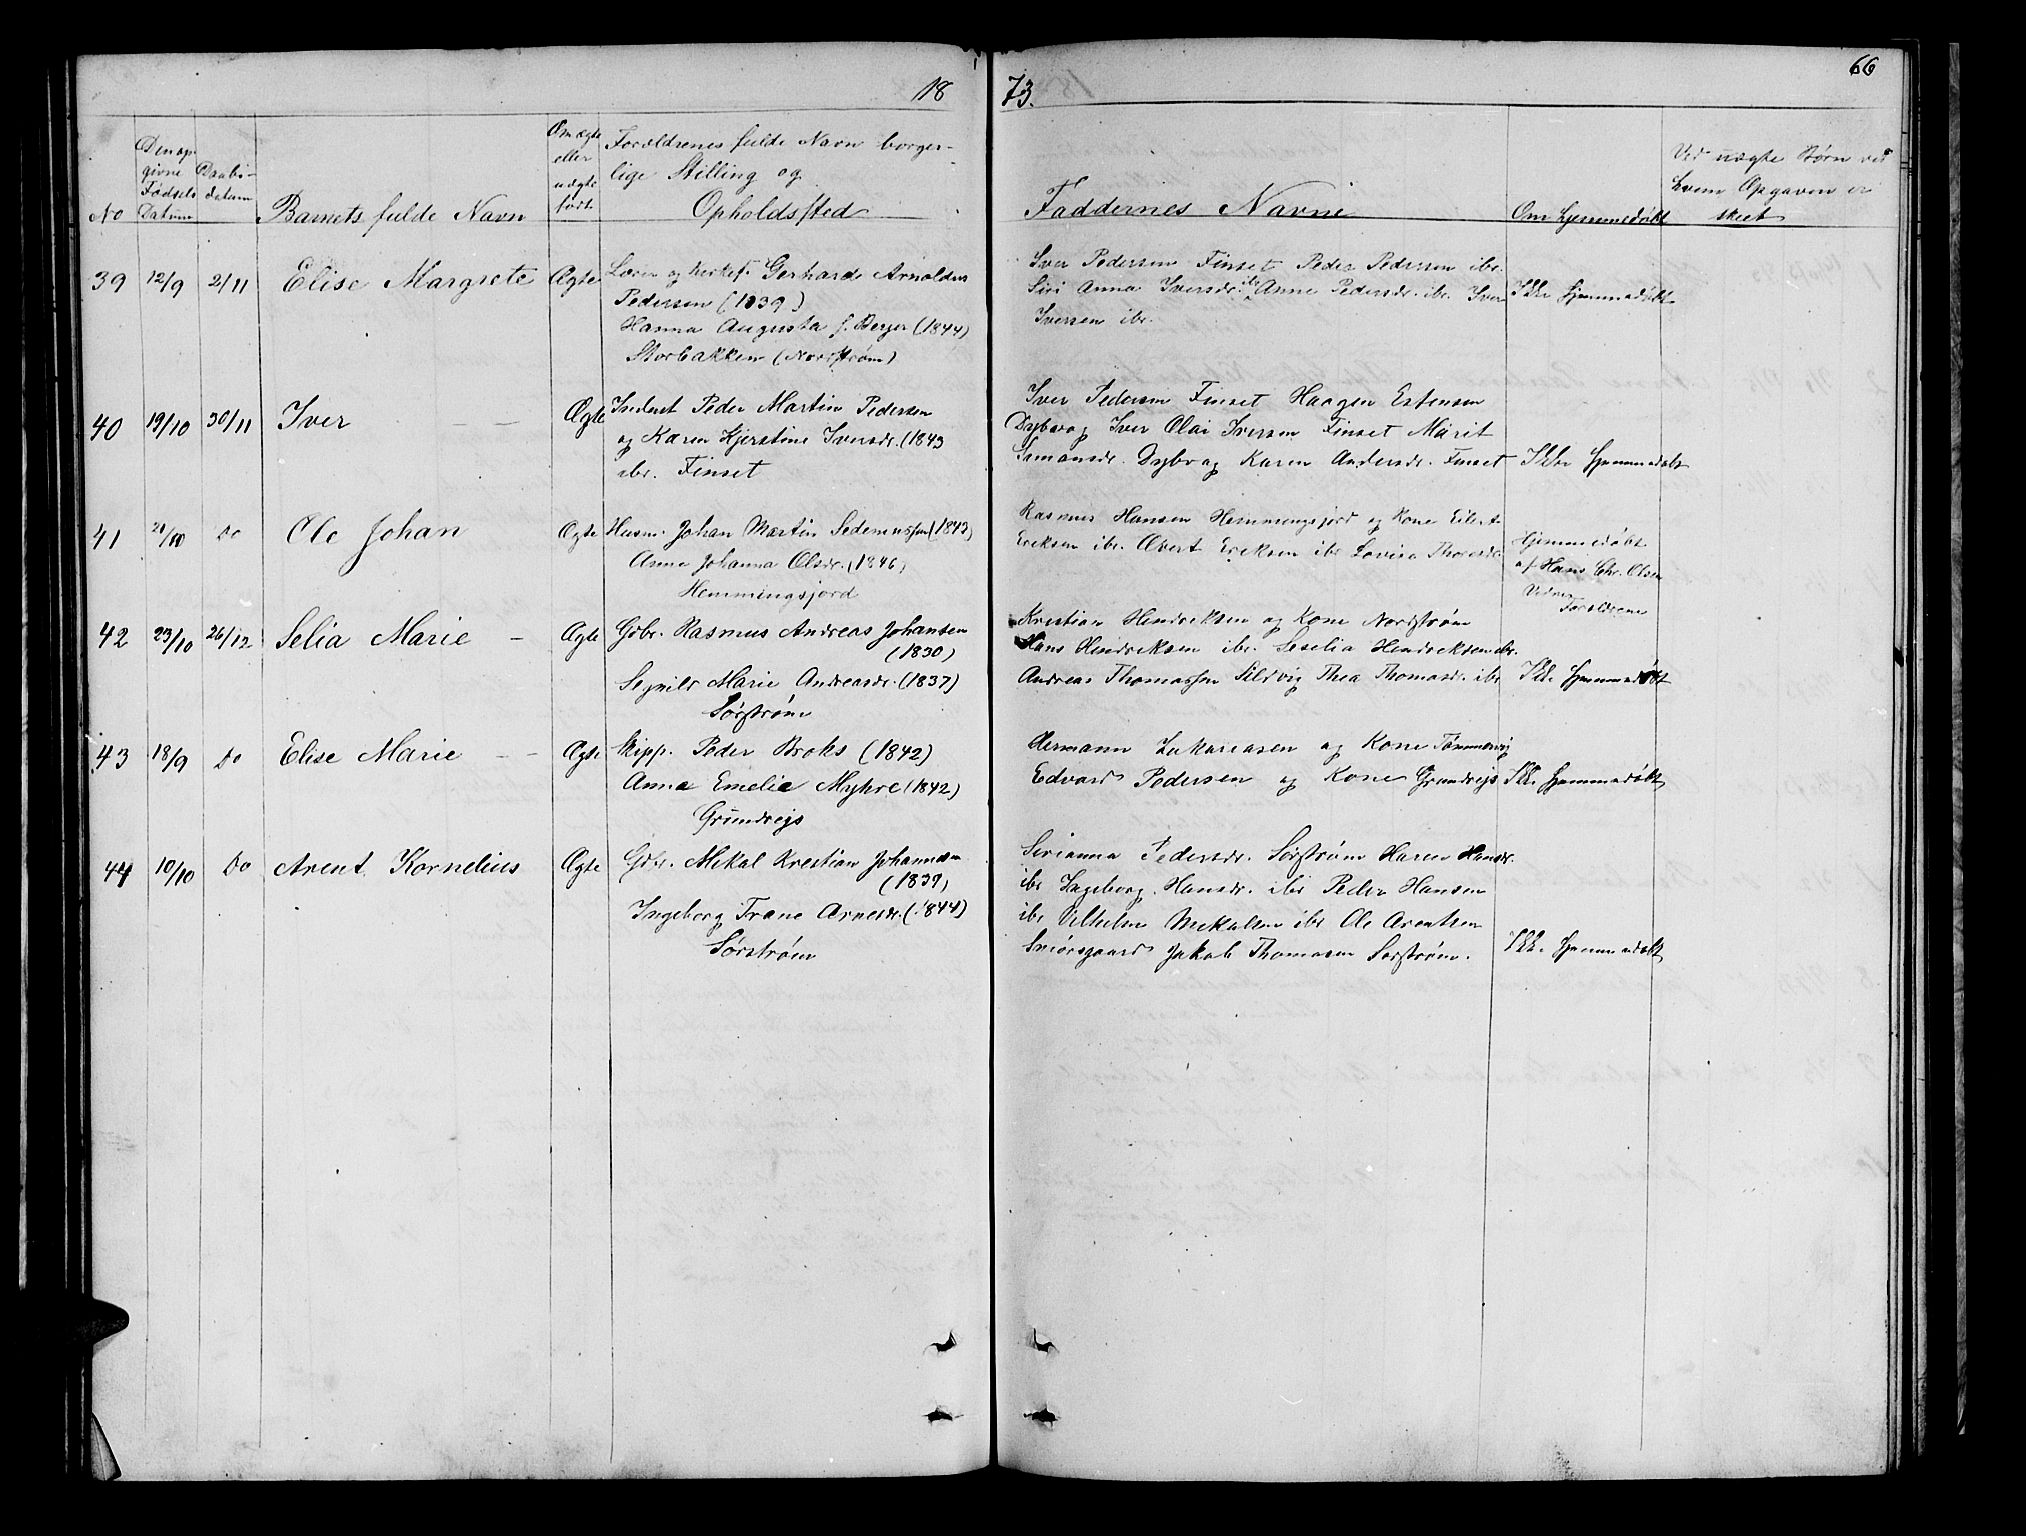 1873.
66
No
Den op-
givne
Fødsels
Datum
Daabs-
datum
Barnets fulde Navn
Om ægte
eller
uægte
født.
Forældrenes fulde Navn borger-
lige Stilling og
Opholdssted
Faddernes Navne
Om hjemmedøbt
Ved uægte Børn ved
hvem Opgaven er
skeet
39 12/9 2/11 Elise Margrete Ægte
Lærer og Kirkes. Gerhard Arnoldus
Pedersen (1839)
Hanna Augusta f. Berger (1844)
Storbakken (Nordstrøm)
Iver Pedersen Finset Peder Pedersen ibr.
Siri Anna Iversdr. ibr Anne Pedersdr. ibr. Iver
Iversen ibr.
Ikke Hjemmedøbt
40 19/10 30/11 Iver Ægte
Inderst Peder Martin Pedersen
og Karen Kjerstine Iversdr. (1843
ibr. Finset
Iver Pedersen Finset Haagen Estensen
Dybvog Iver Olai Iversen Finset Marit
Dybvog Karen Andersdr. Finset
Ikke Hjemmedøbt
41 Do Ole Johan Ægte
Husm. Johan Martin (1843)
Anna Johanna Olsdr. (1846)
Hemmingsjord
Rasmus Hansen Hemmingsjord og Kone Eilert
Eriksen ibr. Evert Eriksen ibr Lovisa
Hjemmedøbt
af Hans Chr. Olsen
Vidner
Forældrene
42 23/10 26/12 Selia Marie Ægte
Gdbr. Rasmus Andreas Johansen
(1830)
Marie Andreasdr. (1837)
Sørstrøm
Kristian Hendriksen og Kone Nordstrøm
Hans Hendriksen ibr. Seselia Hendriksen ibr.
Andreas Thomassen Thea Thomasdr. ibr
Ikke Hjemmedøbt
43 18/9 Do Elise Marie Ægte
Skipp. Peder Broks (1842)
Anna Emelie Myhre (1842)
Grundvejs
Hermann Sakariasen og Kone Tømmervig
Edvard Pedersen og Kone Grundvejs
Ikke Hjemmedøbt
44 10/10 Do Arent Kornelius Ægte
Gdbr. Mekal Krestian Johannesen
(1839)
Ingeborg Trane Arnesdr. (1844)
Sørstrøm
Sirianna Pedersdr. Sørstrøm Karen Hansdr.
ibr Ingeborg Hansdr. ibr Peder Hansen
ibr Vilhelm Mekalsen ibr Ole Arentsen
Smørsgaard Jakob Thomasen Sørstrøm.
Ikke Hjemmedøbt